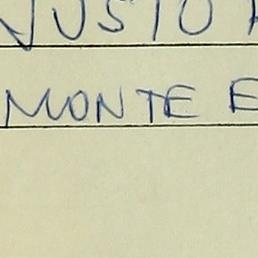 JUSTO
MONTE E